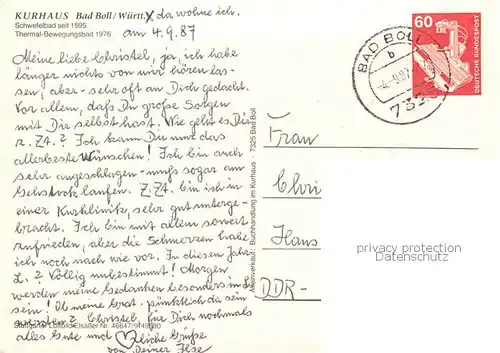 KURHAUS Bad Boll/Württ. X da wohne ich.
Schwefelbad seit 1595
Thermal-Bewegungsbad 1976 am 4.9.87
Meine liebe Christel, ja, ich habe
länger nichts von mir hören las-
sen, aber - sehr oft an Dich gedacht.
Vor allem, daß Du große Sorgen
mit Dir selbst hast. Wie geht es Dir
z. Zt.? Ich kann Dir nur das
allerbeste Wünschen! Ich bin auch
sehr angeschlagen - muß sogar am
Gehstock laufen. Z.Zt. bin ich in
einer Kurklinik, sehr gut unterge-
bracht. Ich bin mit soweit
zufrieden, aber die Schmerzen habe
ich noch nach wie vor. In diesem Jahr
L.? Völlig unbestimmt! Morgen
werden meine Gedanken besonders in L.
sein! Ob meine Grat. pünktlich da sein
Christel, für Dich nochmals
alles Gute und herzliche Grüße
von Deiner Ilse
Stuttgarter Luftbild Elsäßer Nr. 46647/9149680
Alleinverkauf: Buchhandlung im Kurhaus · 7325 Bad Boll
60
DEUTSCHE BUNDESPOST
BAD BOLL
b
7325
Frau
Chri
Hans
DDR-
proprietary watermark
Datenschutz